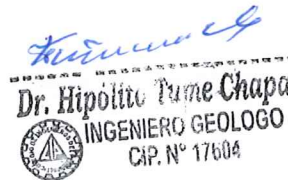 Dr. Hipólito Tume Chapa
INGENIERO GEOLOGO
CIP. N° 17604